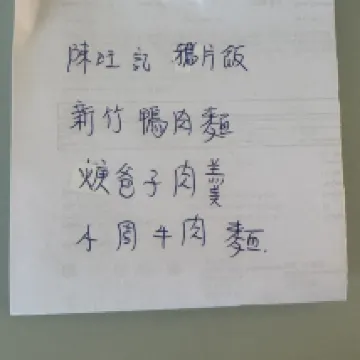 陳旺記 鵝片飯
新竹 鴨肉麵
爸子肉羹
小周牛肉麵.